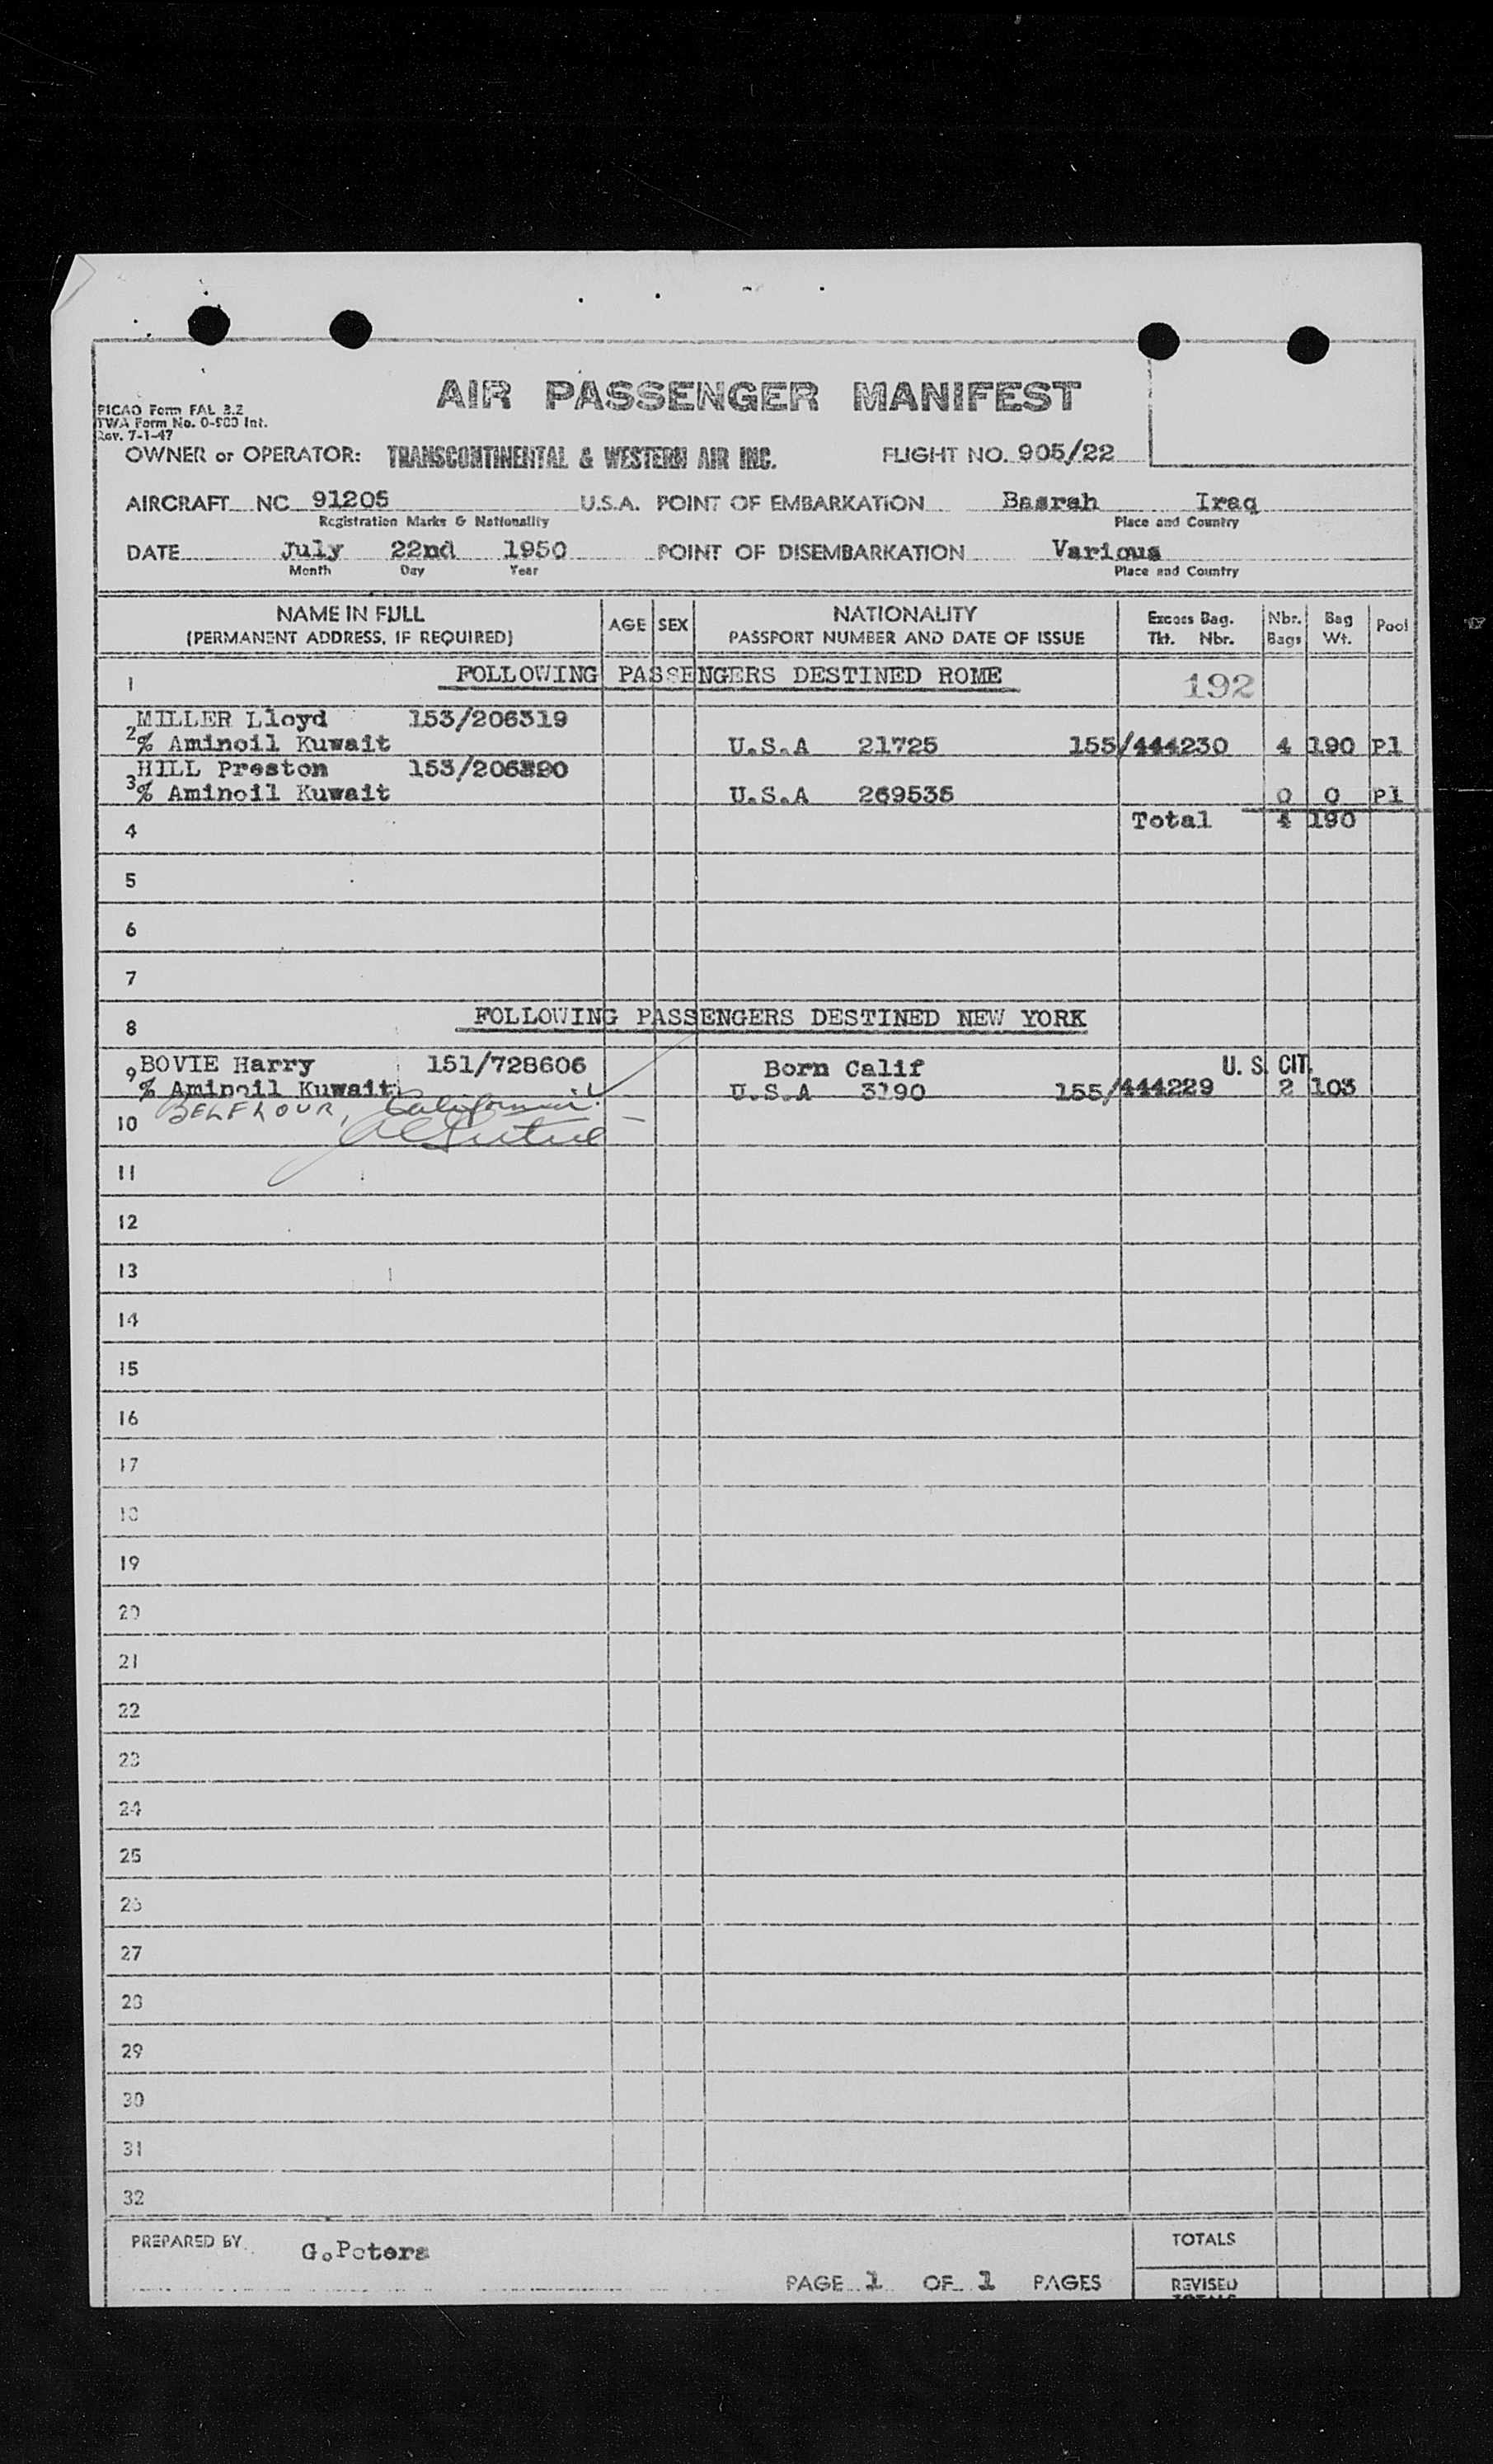 AIR PASSENGER MANIFEST
PICAO Form FAL 3.2
TWA Form No. 0-900 Int.
Rev. 7-1-47
OWNER or OPERATOR: TRANSCONTINENTAL & WESTERN AIR INC. FLIGHT NO. 905/22
AIRCRAFT NC 91205 U.S.A. POINT OF EMBARKATION Basrah Iraq
Registration Marks & Nationality Place and Country
DATE July 22nd 1950 POINT OF DISEMBARKATION Various
Month Day Year Place and Country
NAME IN FULL AGE SEX NATIONALITY Excess Bag. Nbr. Bag Pool
(PERMANENT ADDRESS, IF REQUIRED) PASSPORT NUMBER AND DATE OF ISSUE Tkt. Nbr. Bags Wt.
1 FOLLOWING PASSENGERS DESTINED ROME 192
MILLER Lloyd 153/206319
2 % Aminoil Kuwait U.S.A 21725 155/444230 4 190 Pl
HILL Preston 153/206320
3 % Aminoil Kuwait U.S.A 269535 0 0 Pl
4 Total 4 190
5
6
7
8 FOLLOWING PASSENGERS DESTINED NEW YORK
9 BOVIE Harry 151/728606 Born Calif U. S. CIT.
% Aminoil Kuwait U.S.A 3190 155/444229 2 103
BELFLOUR, California
10
11
12
13
14
15
16
17
18
19
20
21
22
23
24
25
26
27
28
29
30
31
32
PREPARED BY G.Peters TOTALS
PAGE 1 OF 1 PAGES REVISED